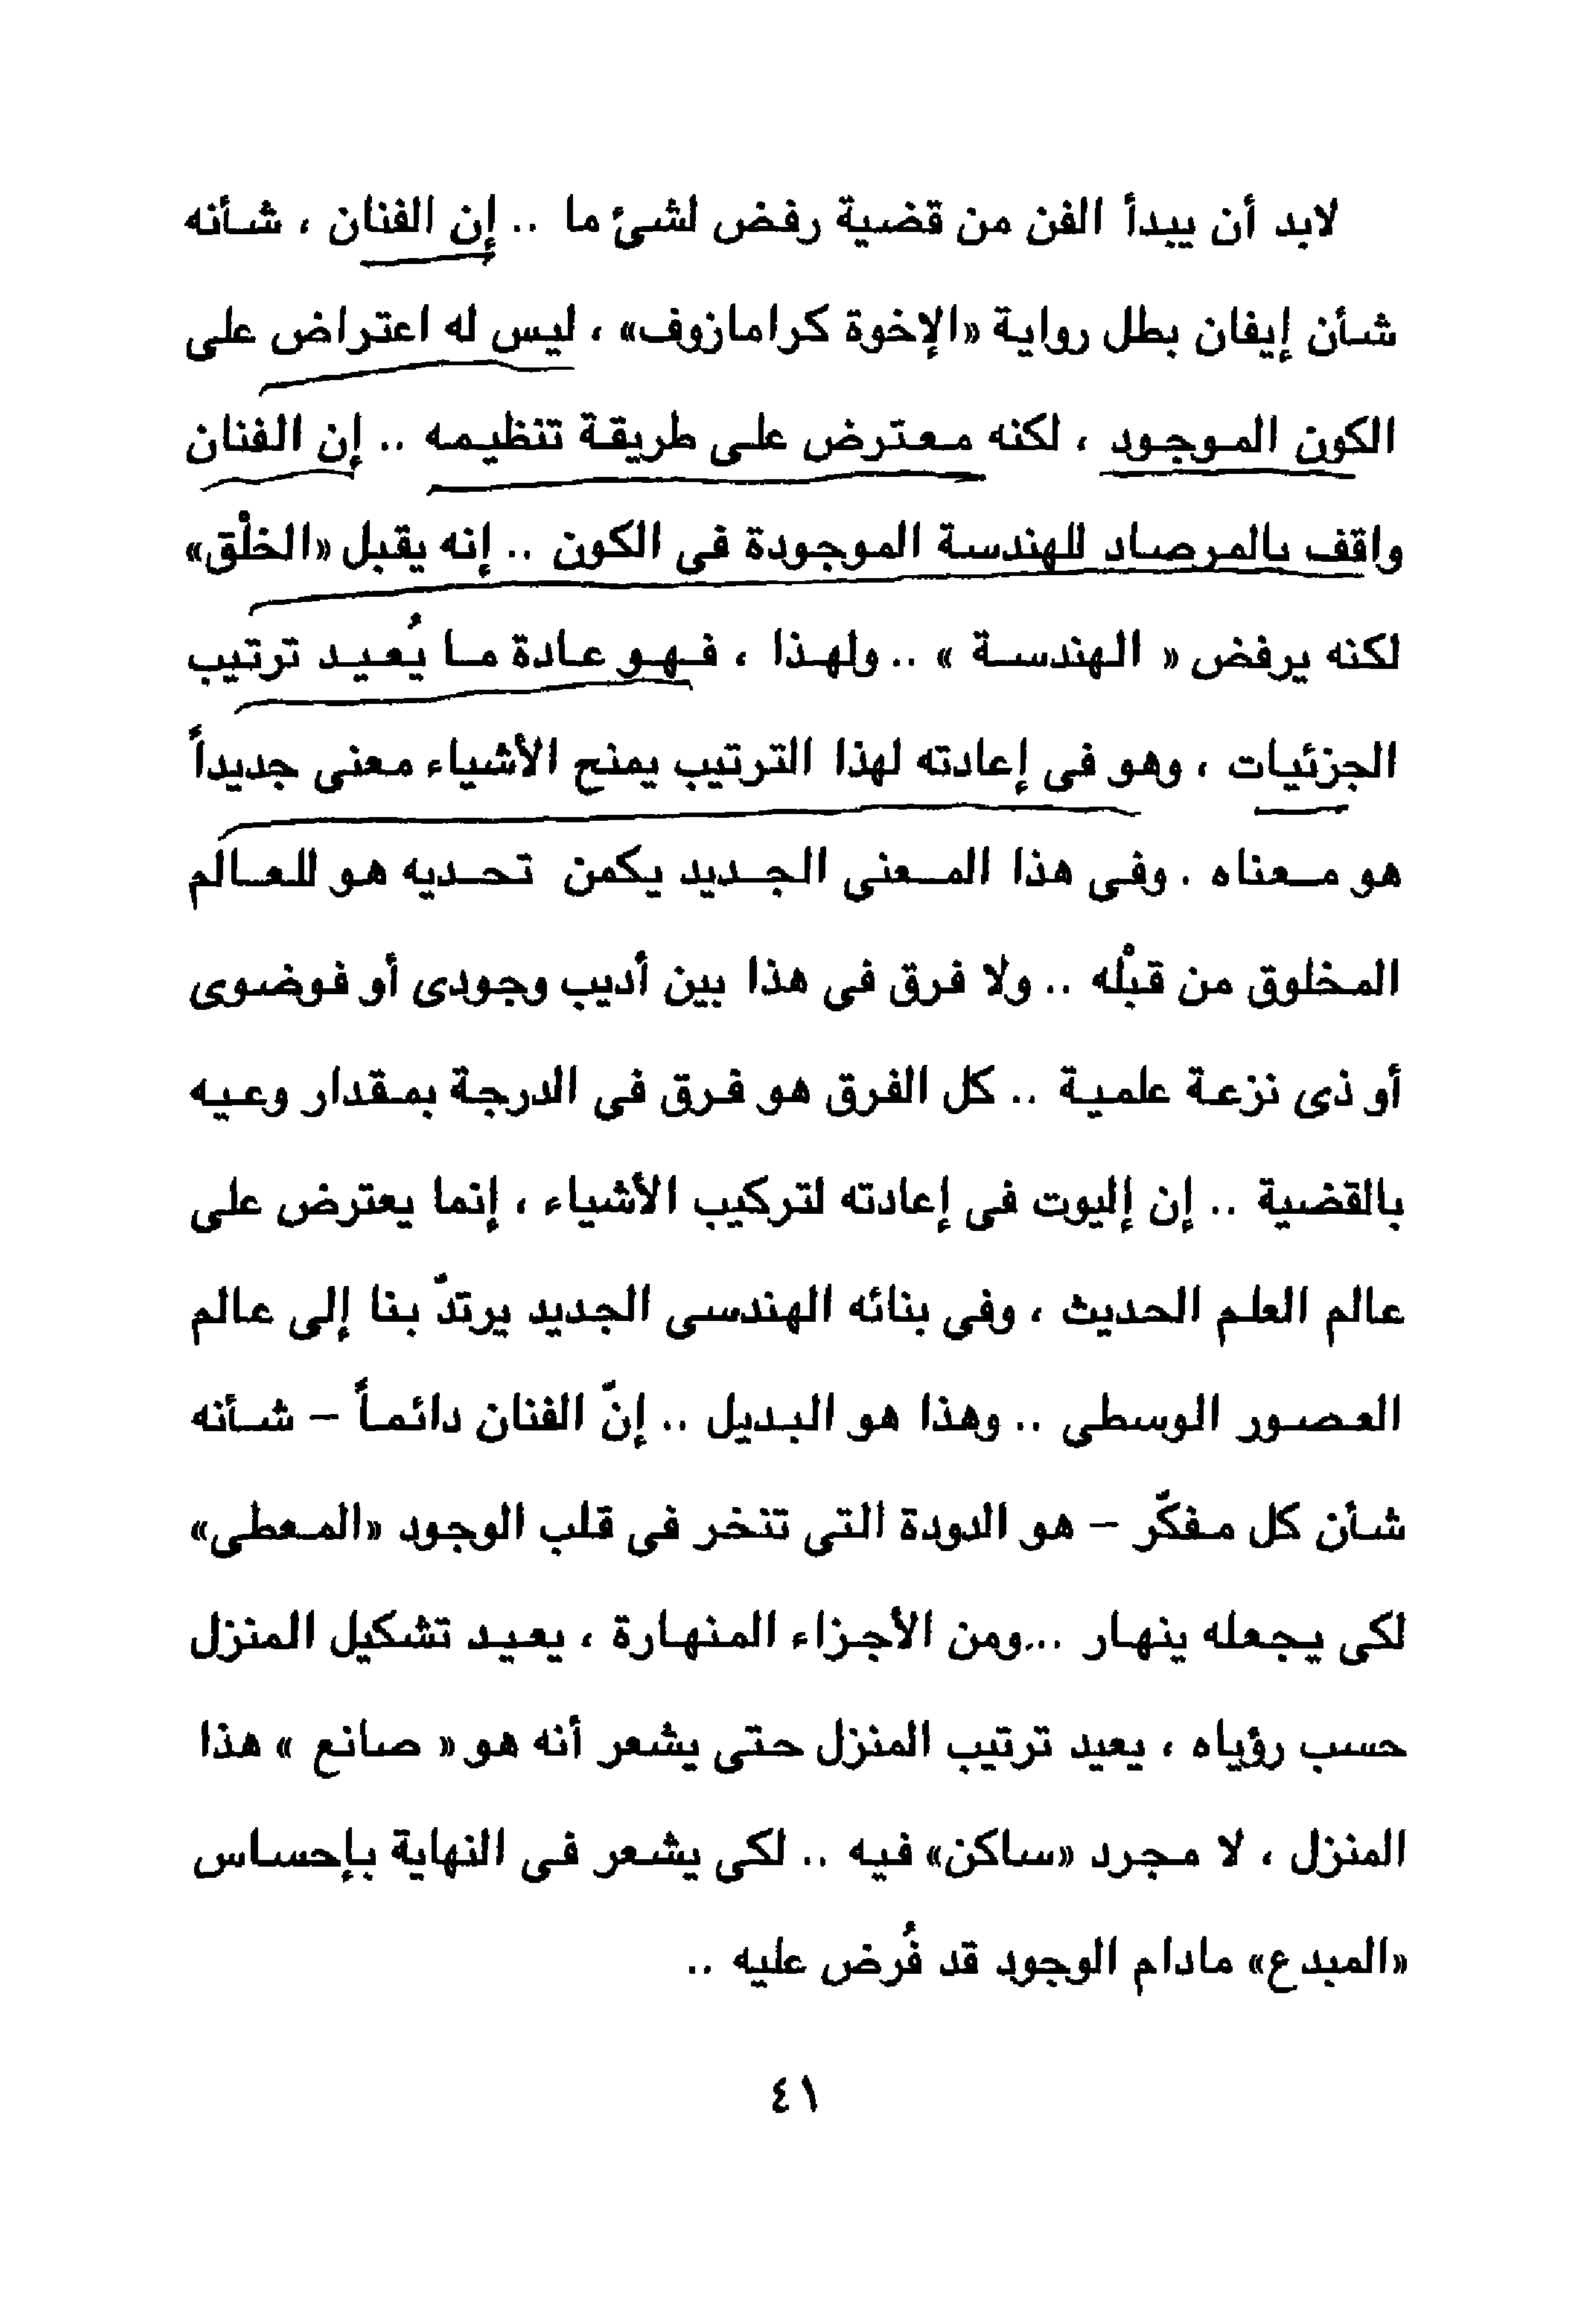 لابد أن يبدأ الفن من قضية رفض لشئ ما .. إن الفنان ، شأنه
شأن إيفان بطل رواية «الإخوة كرامازوف» ، ليس له اعتراض على
الكون الموجود ، لكنه معترض على طريقة تنظيمه .. إن الفنان
واقف بالمرصاد للهندسة الموجودة فى الكون .. إنه يقبل «الخلْق»
لكنه يرفض « الهندسة » .. ولهذا ، فهو عادة ما يُعيد ترتيب
الجزئيات ، وهو فى إعادته لهذا الترتيب يمنح الأشياء معنى جديداً
هو معناه . وفى هذا المعنى الجديد يكمن تحديه هو للعالم
المخلوق من قبْله .. ولا فرق فى هذا بين أديب وجودى أو فوضوى
أو ذى نزعة علمية .. كل الفرق هو فرق فى الدرجة بمقدار وعيه
بالقضية .. إن إليوت فى إعادته لتركيب الأشياء ، إنما يعترض على
عالم العلم الحديث ، وفى بنائه الهندسى الجديد يرتدّ بنا إلى عالم
العصور الوسطى .. وهذا هو البديل .. إنّ الفنان دائماً – شأنه
شأن كل مفكّر – هو الدودة التى تنخر فى قلب الوجود «المعطى»
لكى يجعله ينهار ...ومن الأجزاء المنهارة ، يعيد تشكيل المنزل
حسب رؤياه ، يعيد ترتيب المنزل حتى يشعر أنه هو « صانع » هذا
المنزل ، لا مجرد «ساكن» فيه .. لكى يشعر فى النهاية بإحساس
«المبدع» مادام الوجود قد فُرض عليه ..
٤١